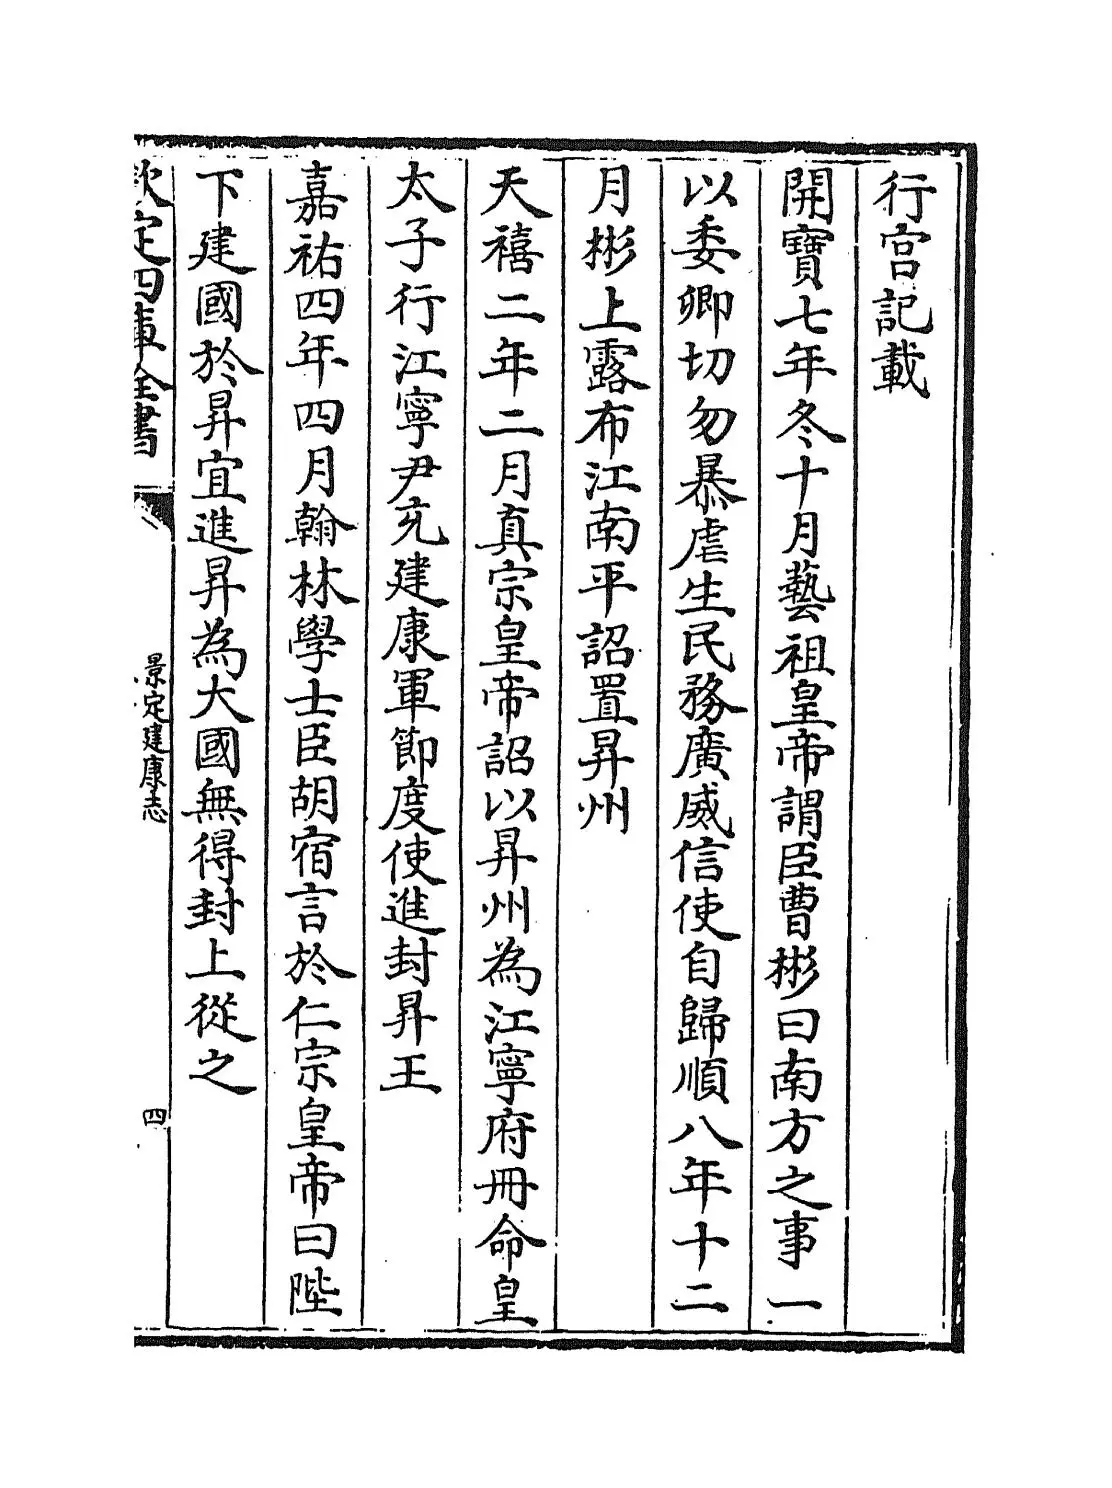 行宫記載
開寶七年冬十月藝祖皇帝謂臣曹彬曰南方之事一
以委卿切勿暴虐生民務廣威信使自歸順八年十二
月彬上露布江南平詔置昇州
天禧二年二月真宗皇帝詔以昇州為江寧府冊命皇
太子行江寧尹充建康軍節度使進封昇王
嘉祐四年四月翰林學士臣胡宿言於仁宗皇帝曰陛
下建國於昇宜進昇為大國無得封上從之
欽定四庫全書
景定建康志
四